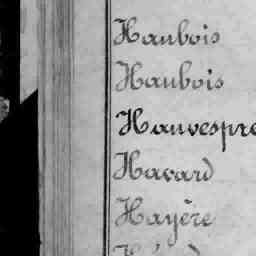 Haubois
Haubois
Hauvespre
Havard
Hayère